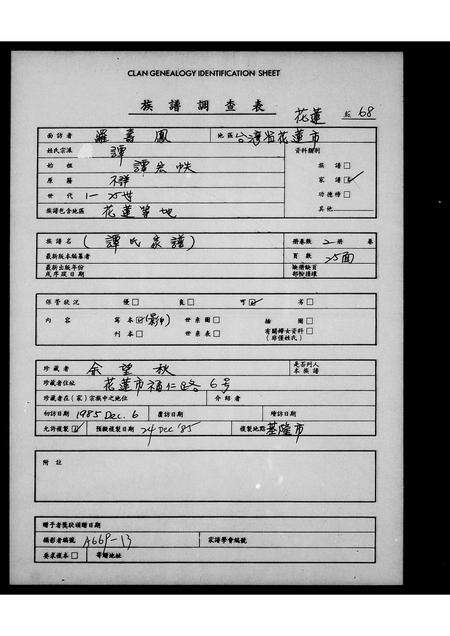 CLAN GENEALOGY IDENTIFICATION SHEET
族譜調查表
花蓮 68
面訪者 羅壽鳳 地區 台灣省花蓮市
姓氏宗派 譚 資料類別
始祖 譚宏帙 族譜□
原籍 不詳 家譜☑
世代 1一25世 功德榜□
族譜包含地區 花蓮等地 其他
族譜名 (譚氏家譜) 冊卷數 2 冊 卷
最新版本編纂者 頁數 25面
最新出版年份或序跋日期
保管狀況 優□ 良□ 可☑ 劣□
內容 寫本☑(影印) 世系圖□ 插圖□
刊本□ 世系表□ 有關婦女資料□(非僅姓氏)
珍藏者 余望秋 是否列入本族譜
珍藏者住址 花蓮市福仁路6号
珍藏者在(家)宗族中之地位 介紹者
初訪日期 1985 Dec. 6 覆訪日期 增訪日期
允許複製☑ 預擬複製日期 24 Dec '85 複製地點 基隆市
附註
贈予者獎狀頒贈日期
攝影者編號 A669-13 家譜學會編號
要求複本□ 寄贈地址